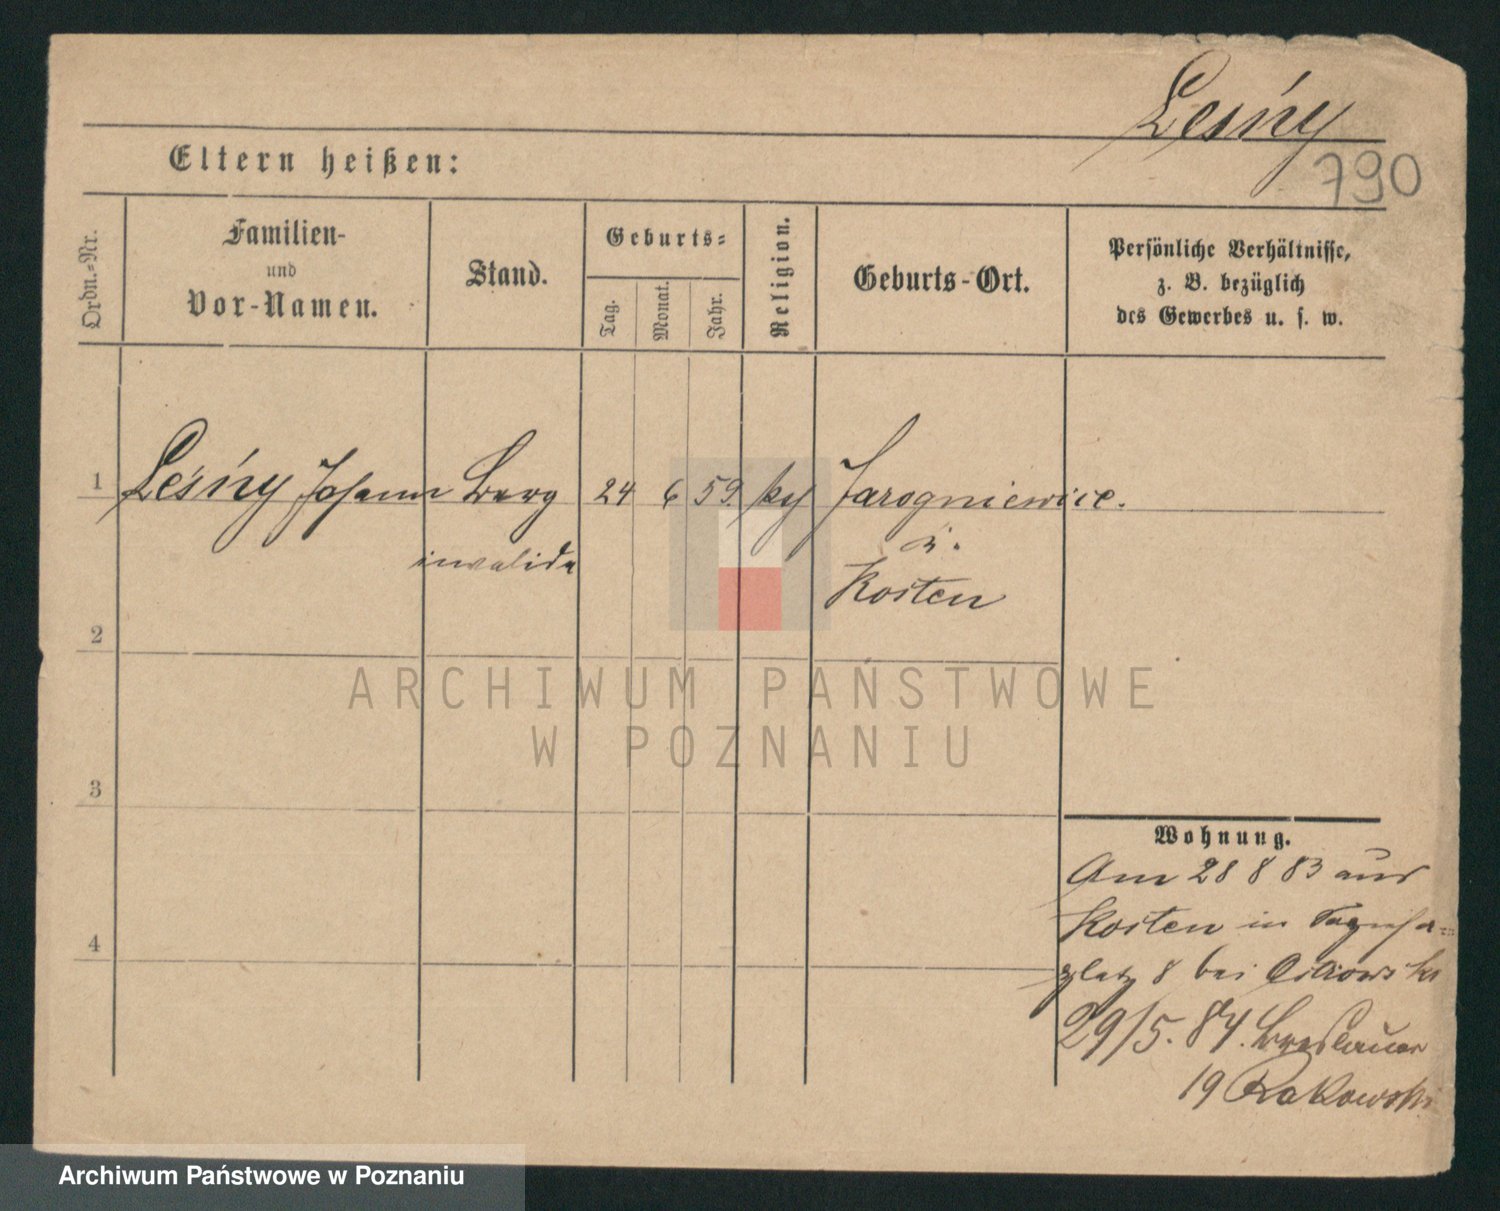 Leśny
790
Eltern heißen:
Ordn.-Nr.
Familien-
und
Vor-Namen.
Stand.
Geburts-
Tag.
Monat.
Jahr.
Religion.
Geburts-Ort.
Persönliche Verhältnisse,
z. B. bezüglich
des Gewerbes u. s. w.
1 Leśny Johann Berg 24 6 59. kth Jarogniewice.
invalide
Kosten
2
ARCHIWUM PAŃSTWOWE
W POZNANIU
3
Wohnung.
Am 28 8 83 aus
Kosten in
platz 8 bei
4
29/5. 84. Breslauer
19 Rakowski
Archiwum Państwowe w Poznaniu